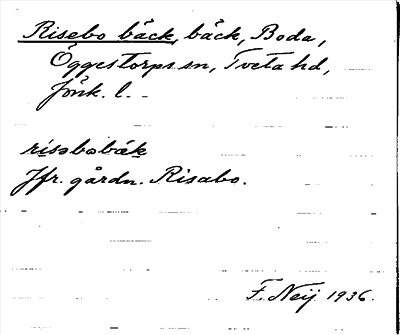 Risebo bäck, bäck, Boda,
Öggestorps sn, Tveta hd,
Jönk. l.
risəbobäk
Jfr. gårdn. Risabo.
F. Neij 1936.